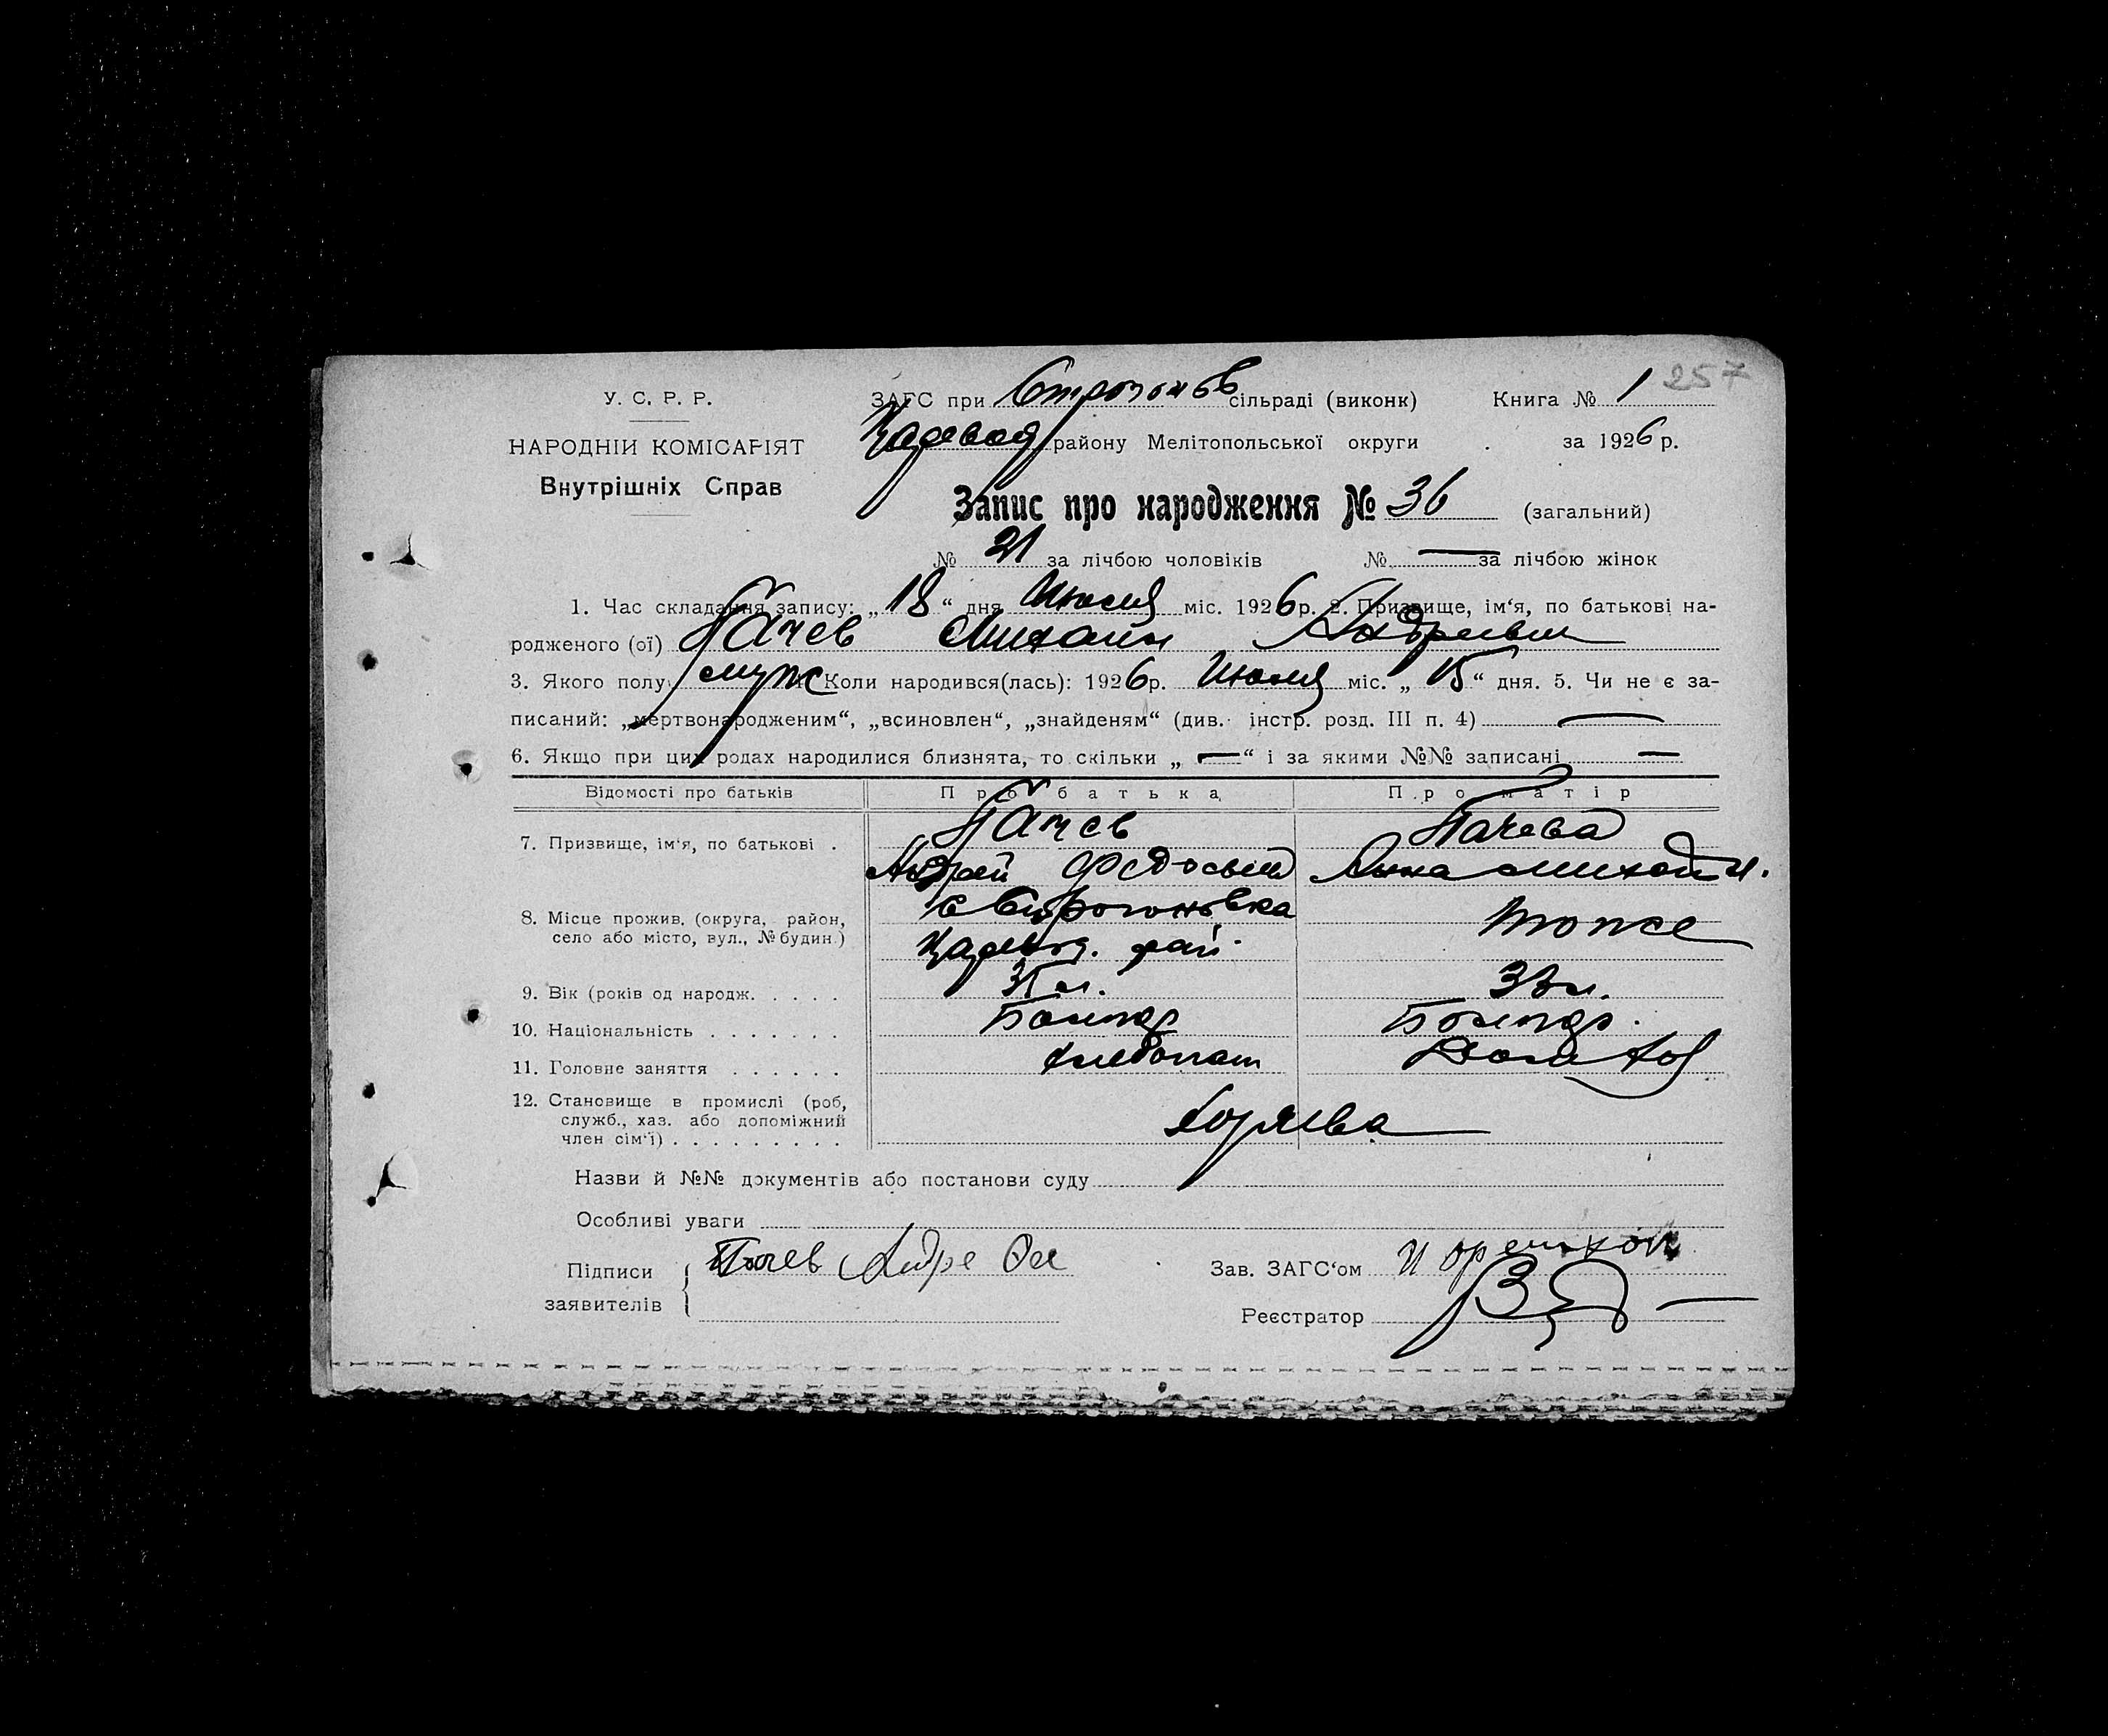 257
У. С. Р. Р.
ЗАГС при Строгонов сільраді (виконк) Книга № 1
НАРОДНІЙ КОМІСАРІЯТ
району Мелітопольської округи за 1926 р.
Внутрішніх Справ
Запис про народження № 36 (загальний)
№ 21 за лічбою чоловіків № — за лічбою жінок
1. Час складання запису: „18“ дня Июля міс. 1926 р. 2. Призвище, ім‘я, по батькові на-
родженого (ої) Пачев Михаил Андреевич
3. Якого полу муж Коли народився(лась): 1926 р. Июля міс. „15“ дня. 5. Чи не є за-
писаний: „мертвонародженим“, „всиновлен“, „знайденям“ (див. інстр. розд. III п. 4) —
6. Якщо при цих родах народилися близнята, то скільки „—“ і за якими №№ записані —
Відомості про батьків Про батька Про матір
7. Призвище, ім‘я, по батькові . Пачев Пачева
Андрей Анна
8. Місце прожив. (округа, район, с Строгоновка тоже
село або місто, вул., № будин.) рай.
9. Вік (років од народж. . . . . л. л.
10. Національність . . . . . . Болгар Болгар.
11. Головне заняття . . . . . . хлебопаш Дом хоз
12. Становище в промислі (роб,
служб., хаз. або допоміжний
член сім‘ї) . . . . . . . . .
Назви й №№ документів або постанови суду
Особливі уваги
Підписи Пачев Зав. ЗАГС‘ом
заявителів
Реєстратор